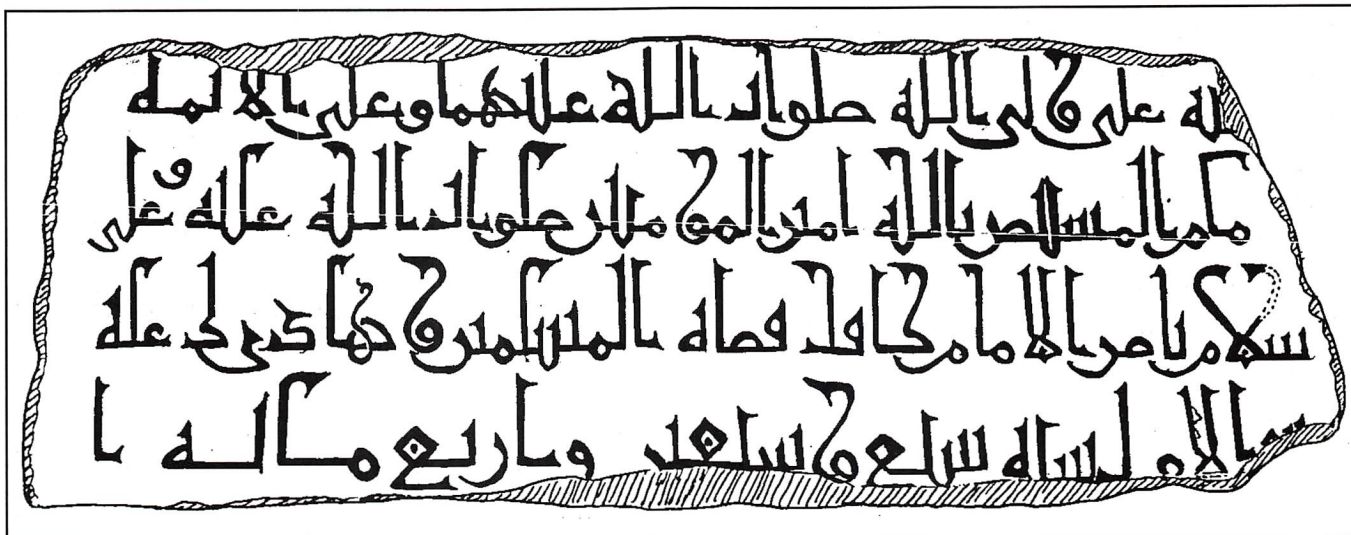 لله على ولى الله صلوات الله عليهما وعلى الائمه
مام المستنصر بالله امير المومنين صلوات الله عليه وعلى
سلام ناصر الامام كافل قضاه المسلمين وهادى دعاه
الاول سنه سبع وسبعين واربع مائه ا